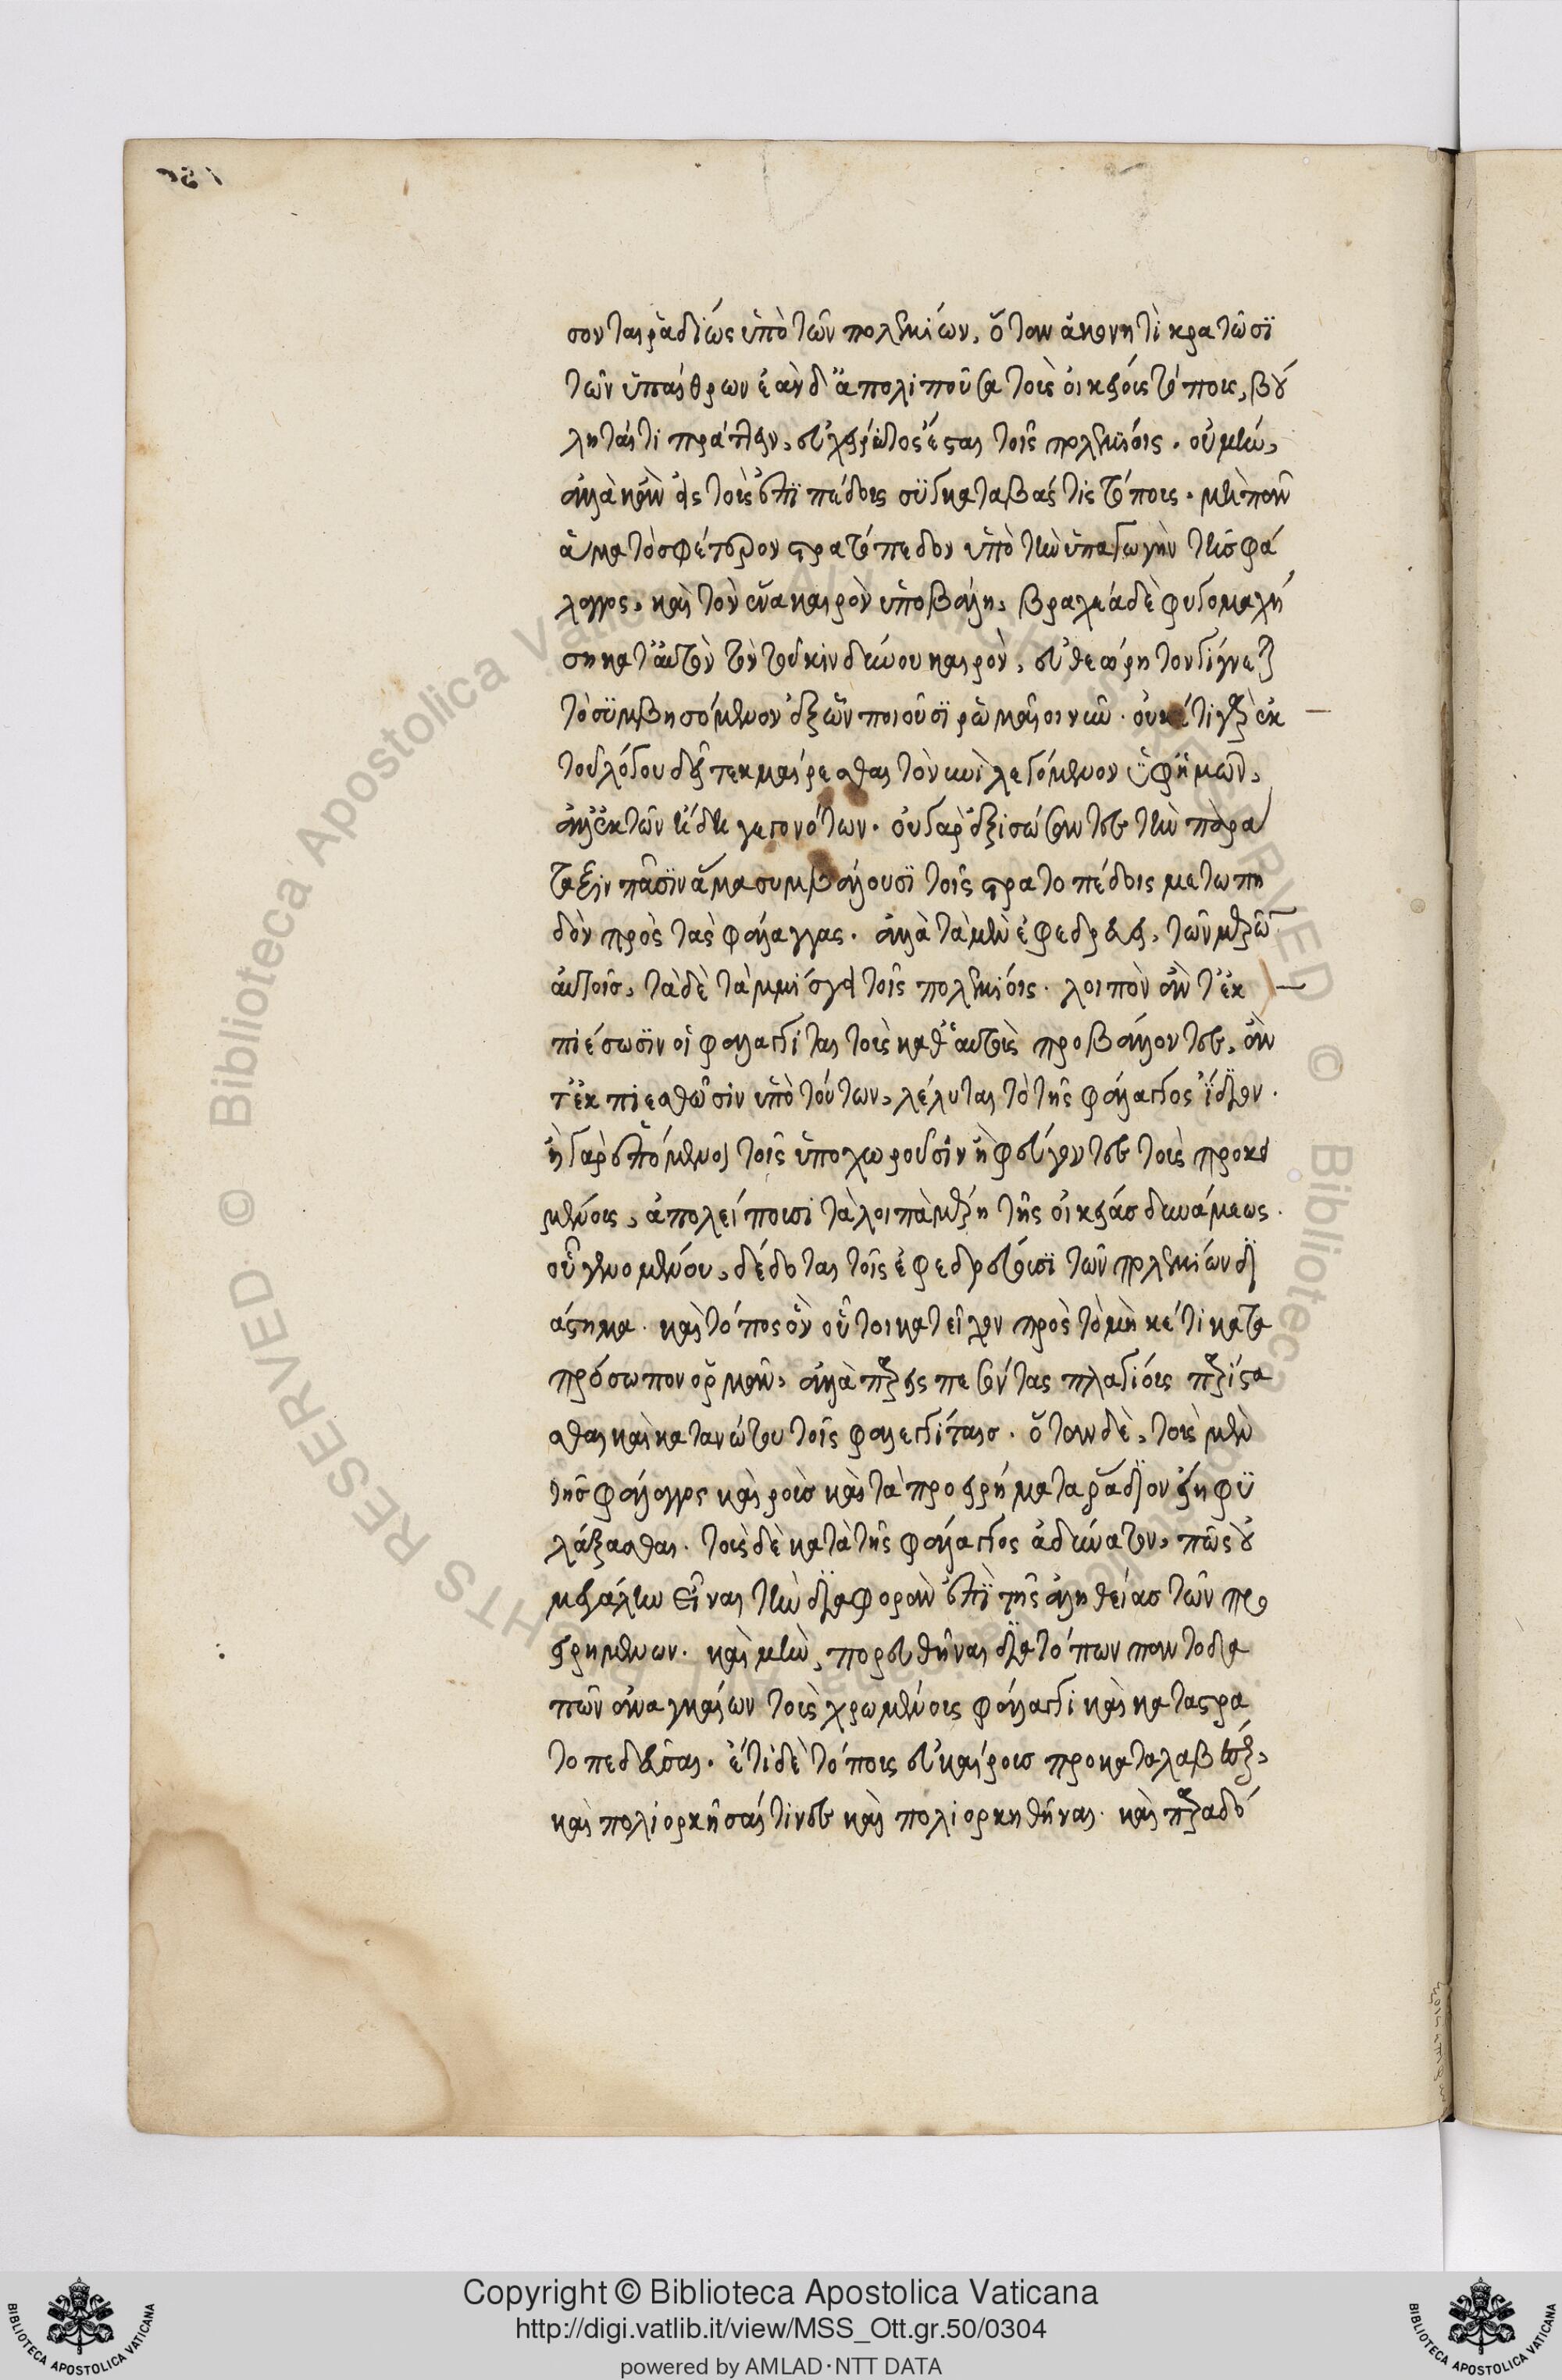 σονται ῥαδίως ὑπὸ τῶν πολεμίων, ὅταν ἀκονητὶ κρατῶσϊ
τῶν ὑπαίθρων ἐὰν δ' ἀπολιποῦσα τοὺς οἰκείους τόπους, βού
ληταί τι πράττειν, εὐχείρωτος ἔσται τοῖς πολεμίοις. οὐ μὴν,
ἀλλὰ κἂν εἰς τοὺς ἐπϊπέδους συγκαταβάς τις τόπους. μὴ πᾶν
ἅμα τὸ σφέτερον στρατόπεδον ὑπὸ τὴν ὑπαγωγὴν τῆς φά
λαγγος, καὶ τὸν ἕνα καιρὸν ὑποβάλλη, βραχέα δὲ φυγομαχή
ση κατ' αὐτὸν τὸν τοῦ κινδύνου καιρὸν, εὐθεώρητον γίγνεται
τὸ συμβησόμενον ἐξ ὧν ποιοῦσϊ ῥωμαῖοι νῦν. οὐκέτι γὰρ ἐκ
τοῦ λόγου δεῖ τεκμαίρεσθαι τὸ νυνὶ λεγόμενον ὑφ' ἡμῶν,
ἀλλ' ἐκ τῶν ἤδη γεγονότων. οὐ γὰρ ἐξισώσαντες τὴν παρά
ταξιν πᾶσϊν ἅμα συμβάλλουσϊ τοῖς στρατοπέδοις μετωπη
δὸν πρὸς τὰς φάλαγγας. ἀλλὰ τὰ μὲν ἐφεδρεύει, τῶν μερῶν
αὐτοῖς, τὰ δὲ τὰ μμίσγει τοῖς πολεμίοις. λοιπὸν ἄν τ' ἐκ
πιέσωσϊν οἱ φαλαγγίται τοὺς καθ' αὑτοὺς προβάλλοντες, ἄν
τ' ἐκπιεσθῶσϊν ὑπὸ τούτων, λέλυται τὸ τῆς φάλαγγος ἴδιον.
ἢ γὰρ ἑπόμενοι τοῖς ὑποχωροῦσϊν ἢ φεύγοντες τοὺς προκει
μένους, ἀπολείπουσι τὰ λοιπὰ μέρη τῆς οἰκείας δυνάμεως.
οὗ γενομένου, δέδοται τοῖς ἐφεδρεύουσϊ τῶν πολεμίων δι
άστημα. καὶ τόπος ὃν οὗτοι κατεῖχον πρὸς τὸ μηκέτι κατὰ
πρόσωπον ὁρμᾶν, ἀλλὰ παρεισπεσόντας πλαγίους παρίστα
σθαι καὶ κατὰ νώτου τοῖς φαλαγγίταις. ὅταν δὲ, τοὺς μὲν
τῆς φάλαγγος καιροὺς καὶ τὰ προειρήματα ῥάδιον εἴη φυ
λάξασθαι. τοὺς δὲ κατὰ τῆς φάλαγγος ἀδύνατον, πῶς οὐ
μεγάλην εἶναι τὴν διαφορὰν ἐπὶ τῆς ἀληθείας τῶν προ
ειρημένων. καὶ μὴν, πορευθῆναι διὰ τόπων παντοδα
πῶν ἀναγκαίων τοὺς χρωμένους φάλαγγι καὶ καταστρα
τοπεδεῦσαι. ἔτι δὲ τόπους εὐκαίρους προκαταλαβέσθαι,
καὶ πολιορκῆσαί τινας καὶ πολιορκηθῆναι. καὶ παραδό
Copyright © Biblioteca Apostolica Vaticana
http://digi.vatlib.it/view/MSS_Ott.gr.50/0304
powered by AMLAD·NTT DATA